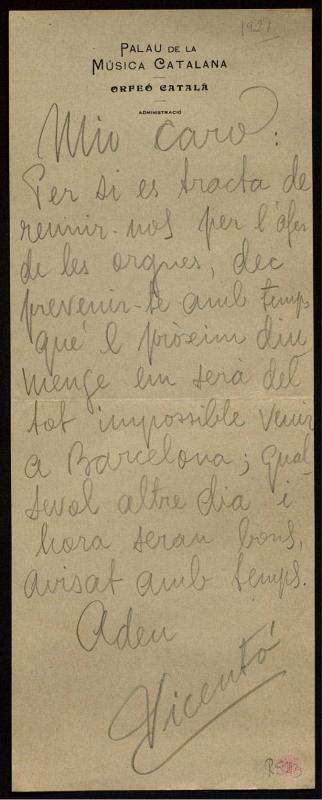 1921
PALAU DE LA
MÚSICA CATALANA
ORFEÓ CATALÀ
ADMINISTRACIÓ
Mio Caro:
Per si es tracta de
reunir-nos per l'afer
de les orgues, dec
prevenir-te amb temps
que'l pròxim diu
menge em serà del
tot impossible venir
a Barcelona; qual
sevol altre dia i
hora seran bons,
avisat amb temps.
Adeu
Vicentó